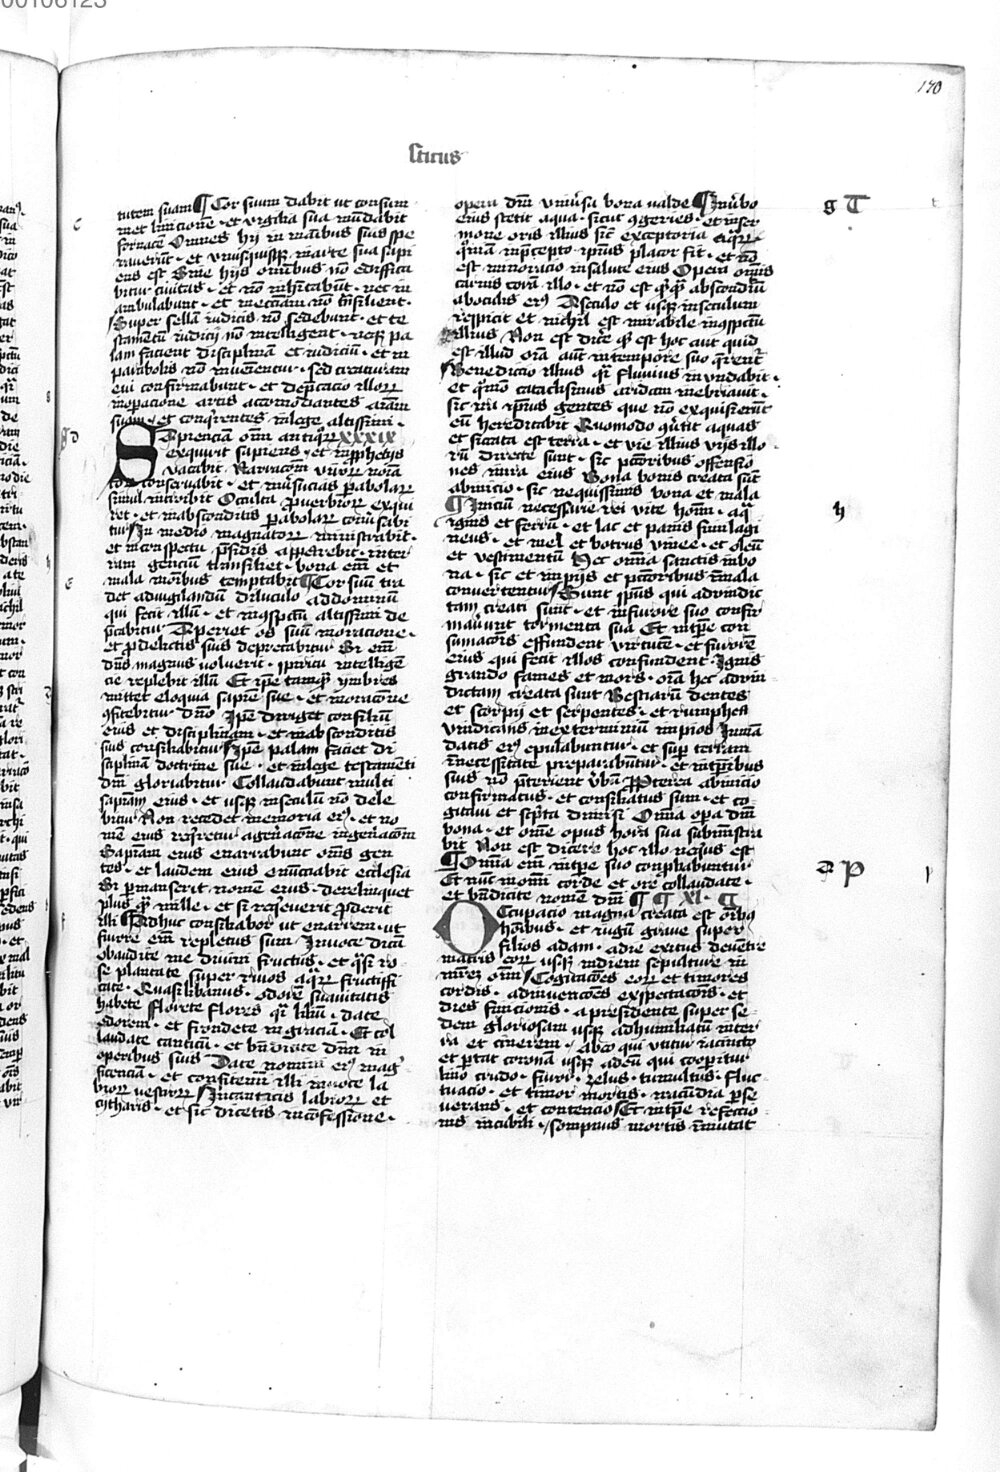 170
sticus
tutem suam ¶ Cor suum dabit ut consum
met linicionē · et vigilia sua mūdabit
fornacē Omnes hij in manibus suis spe
raverūt · et vnusquisqꝫ in arte sua sapi
ens est Sine hijs omībus nō edifica
bitur civitas · et nō inhītabūt · nec in
ambulabunt · et in ecciam nō trāsilient ·
Super sellā iudicis nō sedebunt · et te
stamētū iudicij nō intelligent · neqꝫ pa
lam facient disciplinā et iudiciū · et in
parabolis nō invenientur · sed creaturam
evi confirmabunt · et dep̄catio illoꝝ
in op̄acione artis accomodantes aīam
suam · et conq̄rentes in lege altissimi ·
Sapienciā om̄ antiquoꝝ xxxix
exquirit sapiens · et in ꝓphetijs
vacabit Narracōem viroꝝ noīa
toꝝ conservabit · et in v̄sucias ꝑabolaꝝ
simul introibit Occulta ꝓverbioꝝ exqui
ret · et in absconditis ꝑabolaꝝ cōvsabi
tur In medio magnatoꝝ ministrabit ·
et in conspectu p̄sidis apparebit · in ter
ram genciū transiliet · bona em̄ et
mala in oībus temptabit ¶ Cor suū tra
det ad vigilandū diluculo ad dominū
qui fecit illū · et in cōspctū altissimi de
p̄cabitur Aperiet os suū in oracione ·
et ꝓ delictis suis deprecabitur Si em̄
dn̄s magnus voluerit · spiritu intelligē
cie replebit illū Et ip̄e tamqꝫ ymbres
mittet eloquia sapīe sue · et in oracōne
ꝯfitebitur dn̄o Ip̄e diriget consiliū
eius et disciplinam · et in absconditis
suis consiliabitur Ip̄e palam faciet di
sciplinā doctrine sue · et in lege testamēti
dn̄i gloriabitur Collaudabunt multi
sapīam eius · et usqꝫ in seculū nō dele
bitur Non recedet memoria eiꝰ · et no
mē eius req̄retur a gn̄acōne in gn̄acōem
Sapīam eius enarrabunt om̄s gen
tes · et laudem eius enūciabit ecclesia
Si ꝑmanserit nomē eius · derelinquet
plus qꝫ mille · et si req̄everit ꝓderit
illi ¶ Adhuc consiliabor ut enarrem · ut
furore em̄ repletus sum In voce dicū
obaudite me divini fructus · et qͣsi ro
se plantate super rivos aq̄ꝝ fructifi
cate · Quasi libanus · odorē suavitatis
habete Florete flores qͣsi liliū · date
odorem · et frondete in graciā · Et col
laudate canticū · et bn̄dicite dn̄m in
operibus suis Date nomini eiꝰ mag
ficenciā · et confitemī illi in voce la
bioꝝ vestroꝝ In canticis labioꝝ et
cytharis · et sic dicetis in cōfessione ·
opera dn̄i univ̄sa bona valde ¶ In v̄bo
eius stetit aqua · sicut ꝯgeries · et in ser
mone oris illius sic̄ exceptoria aq̄ꝝ
qm̄ in p̄cepto ip̄ius placor fit · et nō
est minoracio in salute eius Opera om̄is
carnis corā illo · et nō est qͥcqͣ absconditū
ab oculis eiꝰ A seculo et usqꝫ in seculum
respicit et nichil est mirabile in cōspctū
illius Non est dic̄e qͥd est hoc aut quid
est illud oīa aut in tempore suo q̄rent̄
Benediccio illius qͣsi fluvius inundabit ·
et qͦmō cataclismus aridam inebriavit ·
sic ira ip̄ius gentes que nō exquisierūt
eū hereditabit Quomodo ꝯv̄tit aquas
et siccata est terra · et vie illius vijs illo
rū directe sunt · sic pctōribus offensio
nes in ira eius Bona bonis creata sūt
ab inicio · sic nequissimis bona et mala
¶ Iniciū necessarie rei vite hom̄ · aqͣ
ignis et ferrū · et lac et panis similagi
neus · et mel et botrus vinee · et oleū
et vestimentū Hec omīa sanctis in bo
na · sic et impijs et pctōribus in mala
convertentur Sunt sp̄us qui ad vindic
tam creati sunt · et in furore suo confir
maverūt tormenta sua Et in tp̄e con
sumacōis effundent virtutē · et furorē
eius qui fecit illos confundent · Ignis
grando fames et mors · oīa hec ad vin
dictam creata sunt Bestiarū dentes
et scorpij et serpentes · et rumphea
vindicans in exterminiū impios In mā
datis eiꝰ epulabuntur · et suꝑ terram
in necessitate preparabūtur · et in tp̄ibus
suis nō p̄terient v̄bū Propterea ab inicio
confirmatus · et consiliatus sum · et co
gitavi et sc̄pta dimisi Omnia oꝑa dn̄i
bona · et om̄e opus hora sua subministra
bit Non est dicere hoc illo neqius est
¶ Omnia em̄ in tp̄e suo conꝓbabuntur
Et nunc in omī corde et ore collaudate ·
et bn̄dicite nomē dn̄i ¶ ¶ xl · ¶
Occupacio magna creata est om̄ibꝰ
hoībus · et iugū grave super
filios adam · a die exitus de ventre
matris eoꝝ usqꝫ in diem sepulture in
mr̄em om̄iū Cogitacōnes eoꝝ et timores
cordis · adinvenciōes exspectacōnis · et
dies finicionis · a presidente super se
dem gloriosam usqꝫ ad humiliatū in ter
ra et cinerem · ab eo qui utitur iacincto
et portat coronā usqꝫ ad eū qui cooperitur
lino crudo · furor · zelus · tumultus · fluc
tuacio · et timor mortis · iracūdia ꝑse
verans · et contencio Et in tp̄e refeccio
nis in cubili · sompnus mortis inmutat
c
g D
E
g T
h
a P